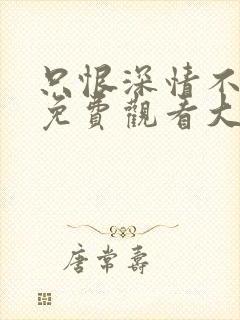 只恨深情不
免費觀看大
唐常壽